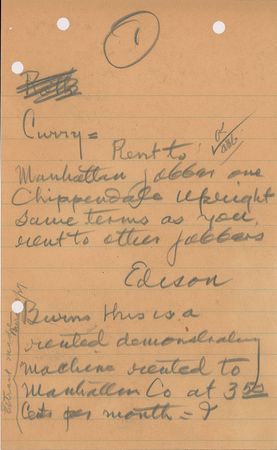 1
Curry =
Rent to OK
Manhattan jobber one
Chippendale upright
same terms as you
rent to other jobbers
Edison
Burns this is a
rented demonstrating
machine rented to
Manhattan Co at 3 50
per month =